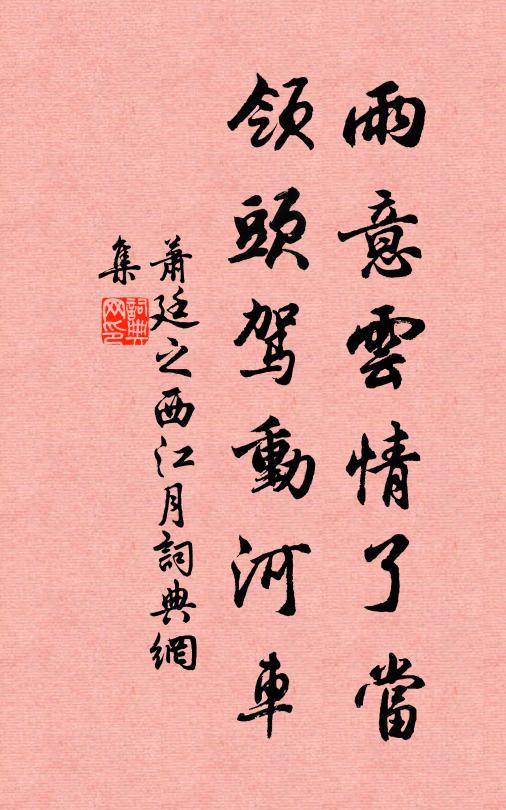 雨意雲情了當
領頭駕動河車
蕭廷之西江月詞典網
集
詞典
网印